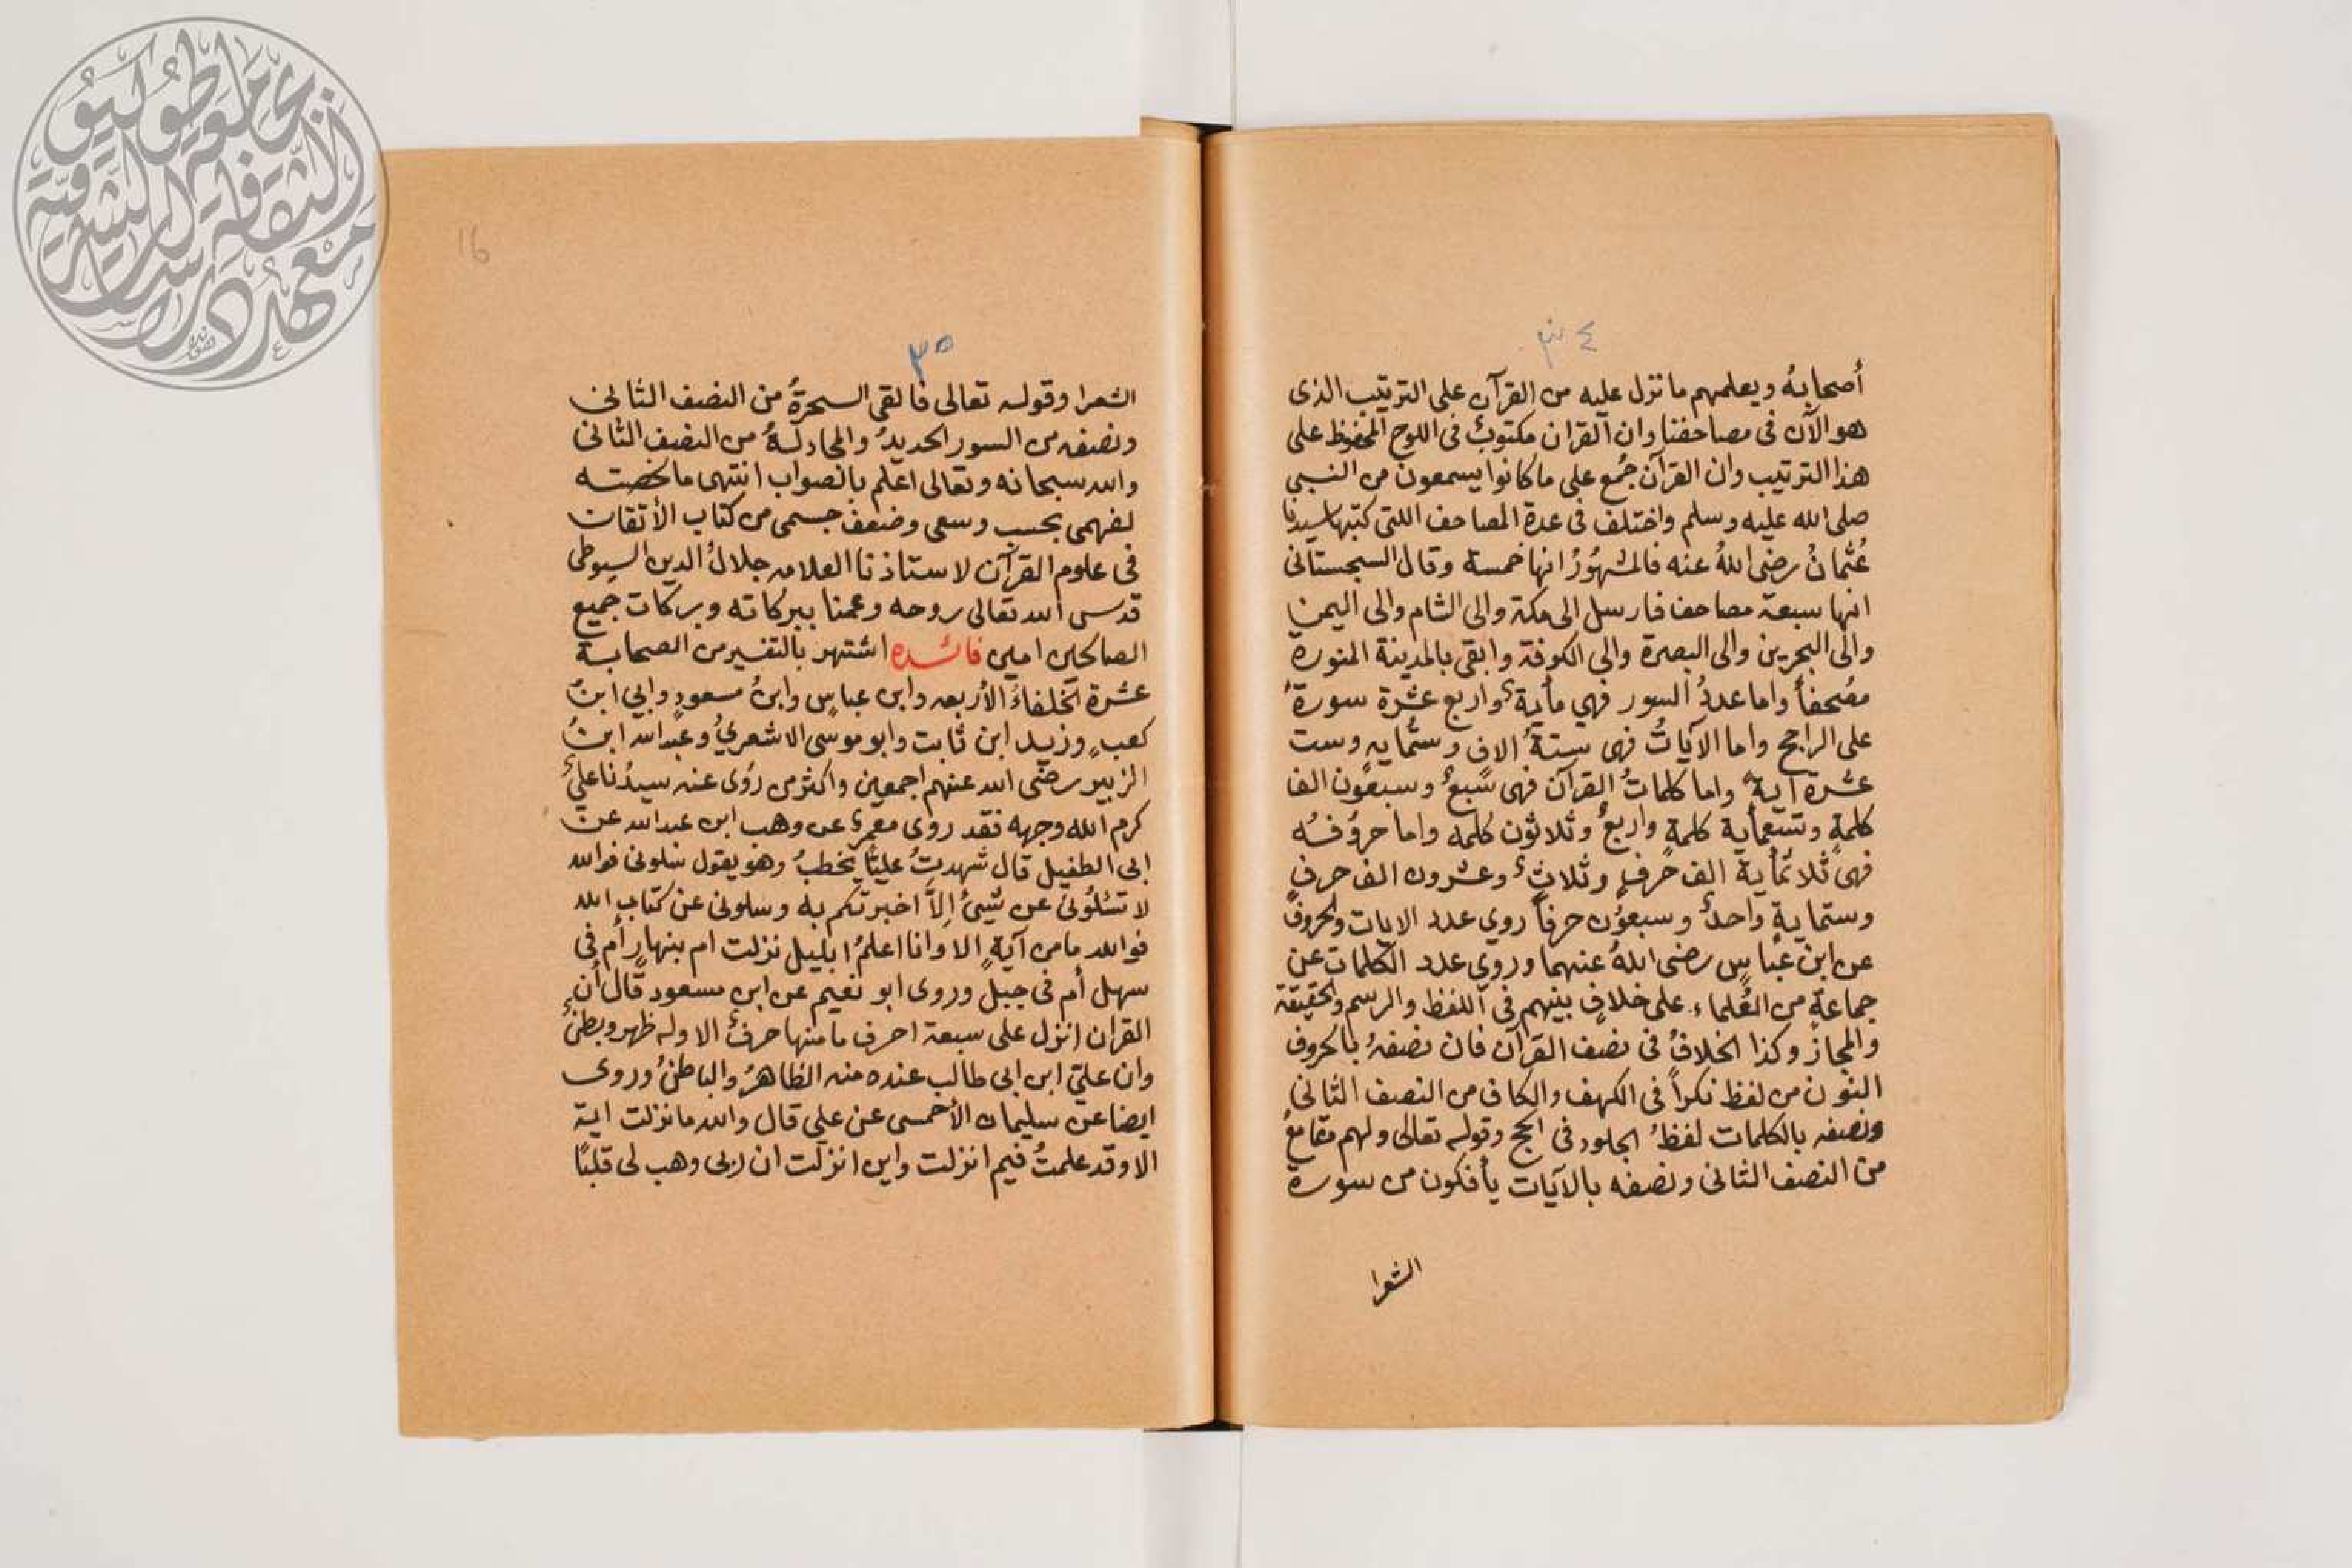 ٣٤
أصحابهُ ويعلمهم ما نزل عليه من القرآن على الترتيب الذى
هو الآن فى مصاحفنا وان القران مكتوبٌ فى اللوح المحفوظ على
هذا الترتيب وان القرآن جُمع على ما كانوا يسمعون من النبي
صلى الله عليه وسلم واختلف فى عدة المصاحف اللتى كتبها سيدنا
عُثمانُ رضى اللهُ عنه فالمشهُورُ انها خمسة وقال السجستانى
انها سبعة مصاحف فارسل الى مكة والى الشام والى اليمن
والى البحرين والى البصرة والى الكوفة وابقى بالمدينة المنورة
مصُحفاً واما عددُ السور فهي مأيةٌ واربع عشرة سورةً
على الراجح واما الآياتُ فهى ستةُ الافٍ وستُمايهٍ وست
عشرة ايةً واما كلماتُ القرآن فهى سَبعٌ وسبعُون الفا
كلمةٍ وتسعمأية كلمةٍ واربعٌ وثلاثون كلمه واما حروُفُه
فهى ثلاثمُأية الف حَرفٍ وثلاثٌ وعشرون الف حرفٍ
وستمايةٍ واحدٌ وسبعوُن حرفاً روي عدد الايات والحروف
عن ابن عباسٍ رضى اللهُ عنهما وروى عدد الكلمات عن
جماعةٍ من العُلماء على خلافٍ بينهم فى اللفظ والرسم والحقيقة
والمجاز وكذا الخلافُ فى نصف القرآن فان نصفهُ بالحروف
النون من لفظ نكراً فى الكهف والكاف من النصف الثانى
ونصفه بالكلمات لفظُ الجلود فى الحج وقوله تعالى ولهم مقامعُ
من النصف الثانى ونصفه بالآيات يأفكون من سورة
الشعرا
١٦
٣٥
الشعرا وقوله تعالى فالقى السحرةُ من النصف الثانى
ونصفه من السور الحديدُ والمجادلةُ من النصف الثانى
والله سبحانه وتعالى اعلم بالصواب انتهى ما لخصته
لفهمى بحسب وسعى وضعف جسمى من كتاب الأتقان
فى علوم القرآن لاستاذنا العلامه جلالُ الدين السيوطى
قدس الله تعالى روحه وعمنا ببركاته وبركات جميع
الصالحين امين فائده اشتهر بالتفسير من الصحابة
عشرة الخلفاءُ الأربعه وابن عباسٍ وابنُ مسعودٍ وابي ابنُ
كعبٍ وزيد ابن ثابت وابو موسى الاشعريُ وعبد الله ابنُ
الزبير رضى الله عنهم اجمعين واكثر من رُوى عنه سيدُنا عليٌ
كرم الله وجهه فقد روى معمرٌ عن وهب ابن عبد الله عن
ابى الطفيل قال شهدتُ علياً يخطبُ وهو يقول سلونى فوالله
لا تسئلُونى عن شيئٍ إلاَّ اخبرتكم به وسلونى عن كتاب الله
فوالله ما من آيةٍ الا وانا اعلمُ ابليل نزلت ام بنهارٍ أم فى
سهل أم فى جبلٍ وروى ابو نعيم عن ابن مسعود قال أن
القران انزل على سبعة احرف ما منها حرفٌ الا وله ظهر وبطنٌ
وان عليّ ابن ابى طالب عنده منه الظاهرُ والباطنُ وروى
ايضا عن سليمان الأحمسى عن علي قال والله ما نزلت اية
الا وقد علمتُ فيم انزلت واين انزلت ان ربى وهب لى قلبًا